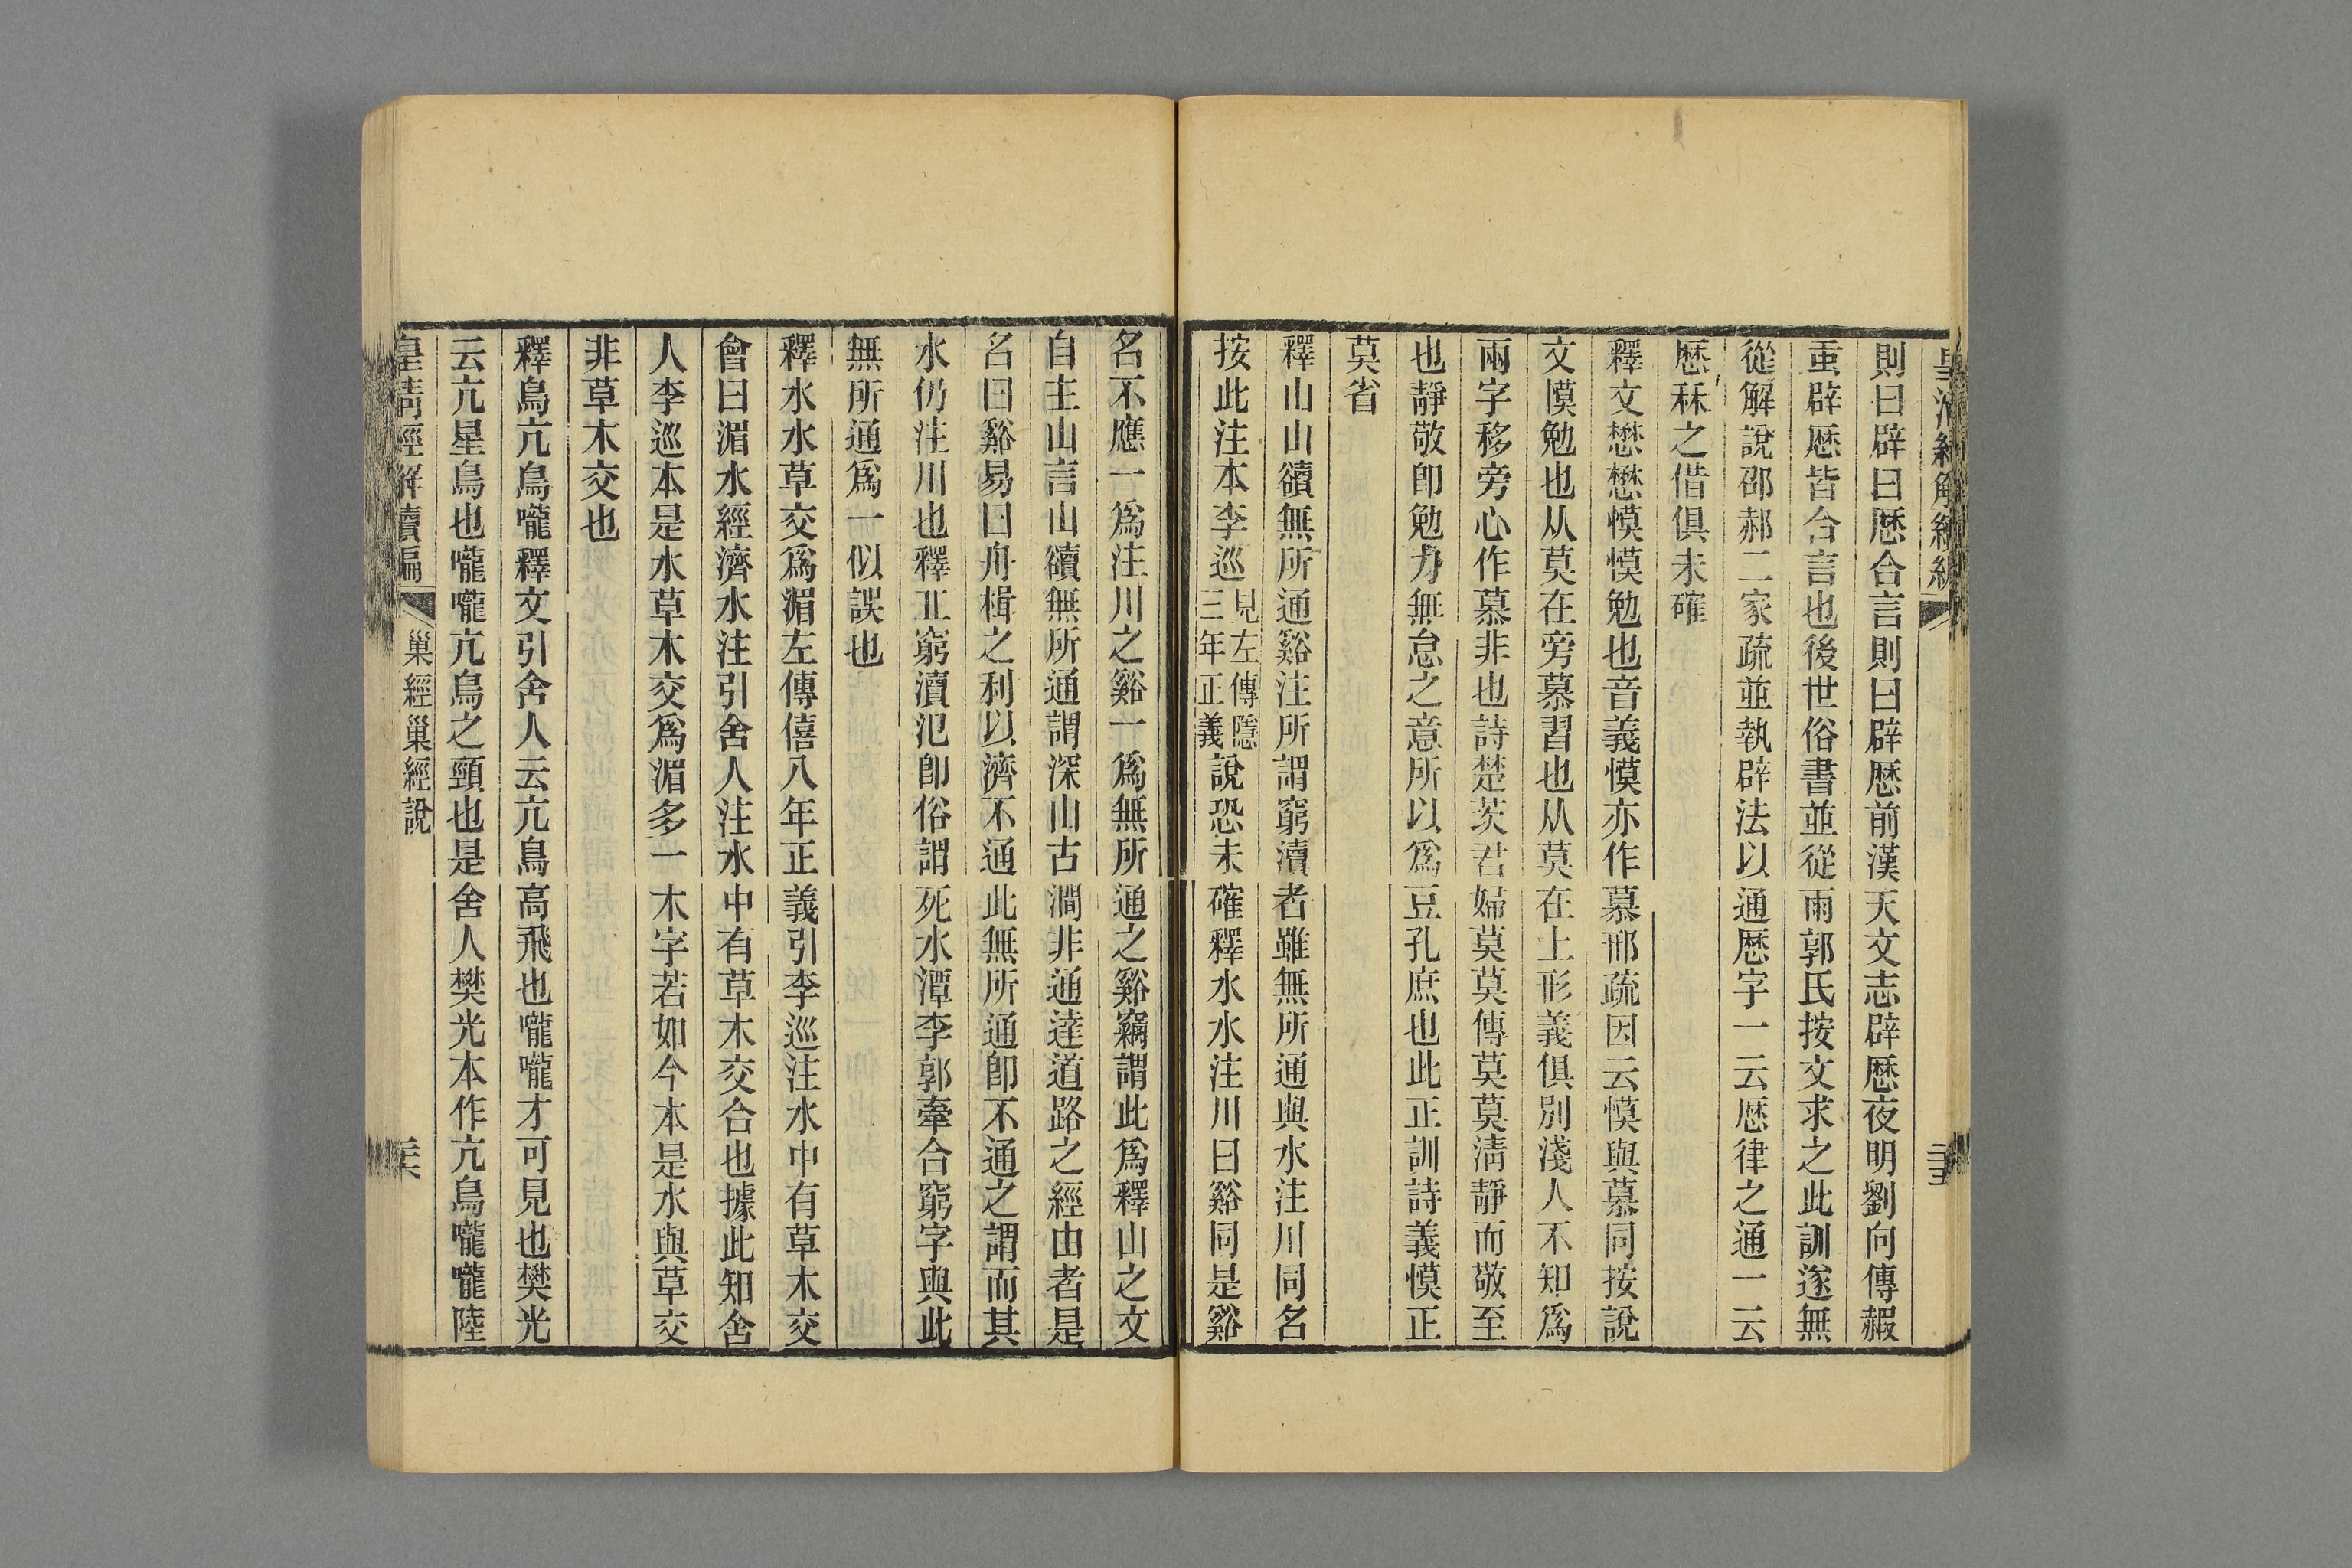 則曰辟曰厯合言則曰辟厯前漢天文志辟厯夜明劉向傳赮
䖝辟厯皆合言也後世俗書並從雨郭氏按文求之此訓遂無
從解說邵郝二家疏並執辟法以通厯字一云厯律之通一云
厯秝之借俱未確
釋文懋懋慔慔勉也音義慔亦作慕邢疏因云慔與慕同按說
文慔勉也从莫在旁慕習也从莫在上形義俱別淺人不知爲
兩字移旁心作慕非也詩楚茨君婦莫莫傳莫莫淸靜而敬至
也靜敬卽勉力無怠之意所以爲豆孔庶也此正訓詩義慔正
莫省
釋山山䜿無所通谿注所謂窮瀆者雖無所通與水注川同名
按此注本李巡見左傳隱三年正義說恐未確釋水水注川曰谿同是谿
名不應一爲注川之谿一爲無所通之谿竊謂此爲釋山之文
自主山言山䜿無所通謂深山古澗非通逹道路之經由者是
名曰谿易曰舟楫之利以濟不通此無所通卽不通之謂而其
水仍注川也釋丘窮瀆汜卽俗謂死水潭李郭牽合窮字與此
無所通爲一似誤也
釋水水草交爲湄左傳僖八年正義引李巡注水中有草木交
會曰湄水經濟水注引舍人注水中有草木交合也據此知舍
人李巡本是水草木交爲湄多一木字若如今本是水與草交
非草木交也
釋鳥亢鳥嚨釋文引舍人云亢鳥高飛也嚨嚨才可見也樊光
云亢星鳥也嚨嚨亢鳥之頸也是舍人樊光本作亢鳥嚨嚨陸
皇淸經解續編
巢經巢經說